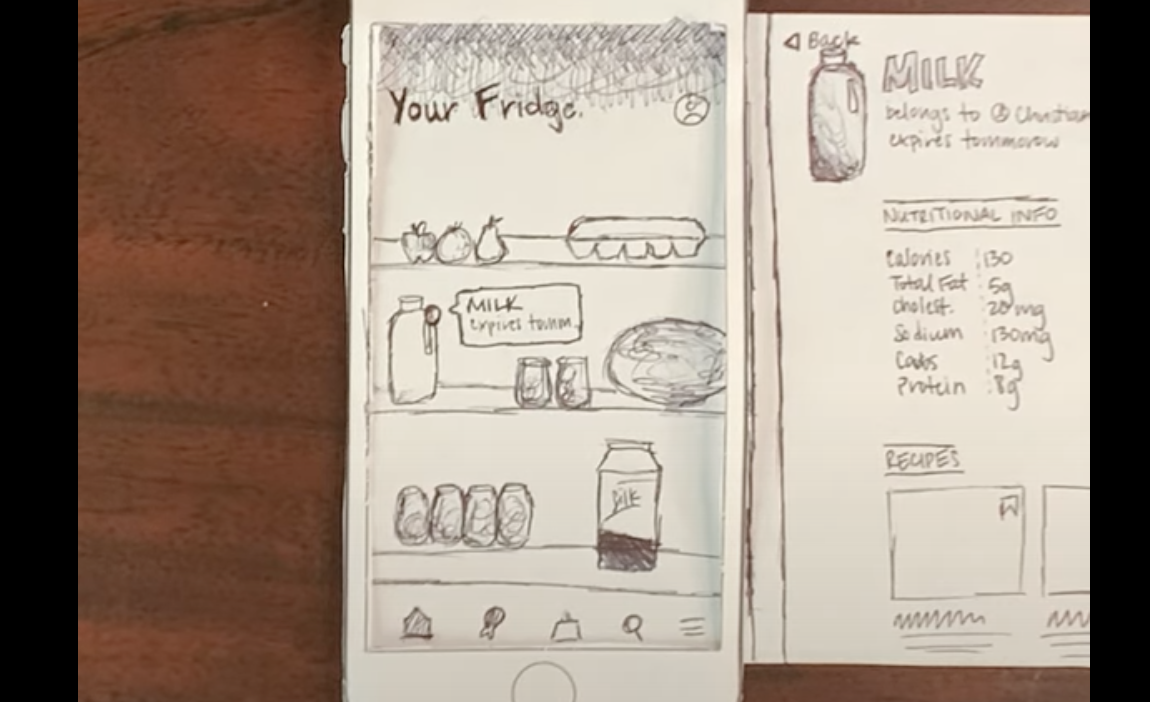 Your Fridge.
MILK
expires tomm.
Silk
Back
MILK
belongs to Christian
expires tommorow
NUTRITIONAL INFO
Calories : 130
Total Fat : 5g
cholest. : 20mg
Sodium : 130mg
Carbs : 12g
Protein : 8g
RECIPES